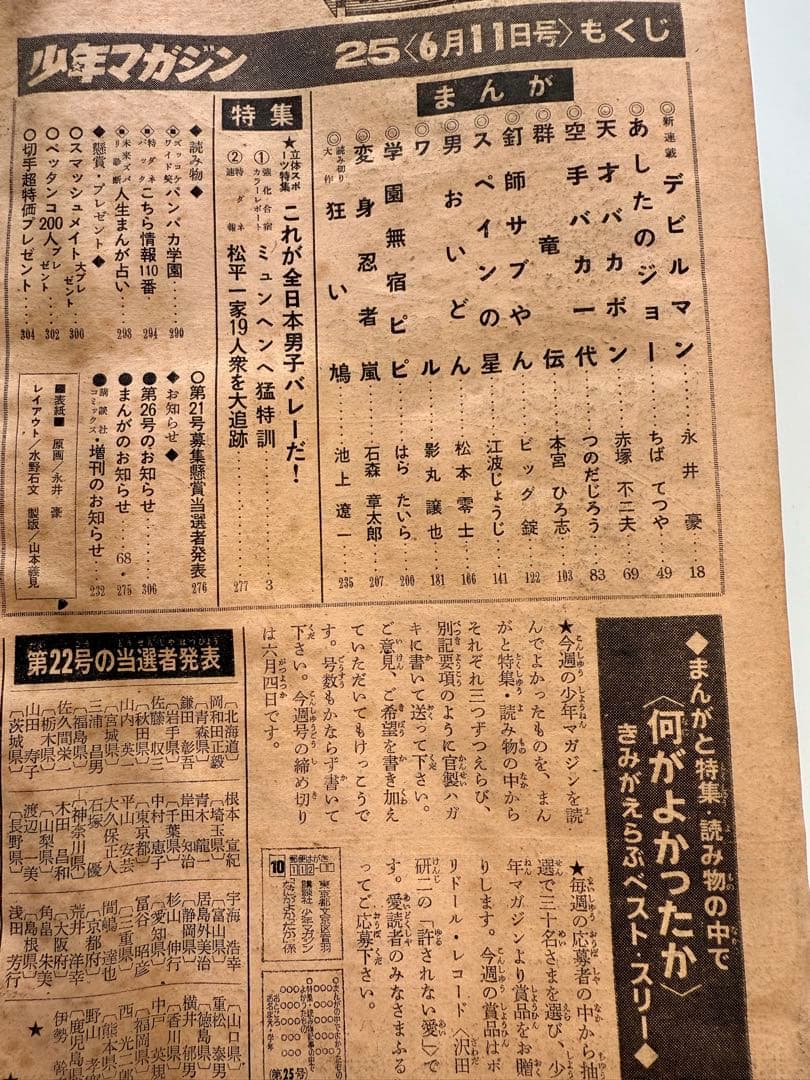 少年マガジン 25〈6月11日号〉もくじ
まんが
◎新連載 デビルマン……永井 豪 18
◎あしたのジョー……ちば てつや 49
◎天才バカボン……赤塚 不二夫 69
◎空手バカ一代……つのだじろう 83
◎群竜伝……本宮 ひろ志 103
◎釘師サブやん……ビッグ 錠 122
◎スペインの星……江波じょうじ 141
◎男おいどん……松本 零士 166
◎ワル……影丸 譲也 181
◎学園無宿ピピ……はら たいら 200
◎変身忍者嵐……石森 章太郎 207
◎読み切り大作 狂い鳩……池上 遼一 235
特集
★立体スポーツ特集 これが全日本男子バレーだ!
①強化合宿カラーレポート ミュンヘンへ猛特訓……3
②特ダネ速報 松平一家19人衆を大追跡……277
◆読み物◆
■ズッコケワイド笑 パンパカ学園……290
■特ダネパック こちら情報110番……294
■未来ズバリ診断 人生まんが占い……298
◆懸賞・プレゼント◆
○スマッシュメイト大プレゼント……300
○ペッタンコ200人プレゼント……302
○切手超特価プレゼント……304
○第21号募集懸賞当選者発表 276
◆お知らせ◆
●第26号のお知らせ……306
●まんがのお知らせ……68・275
●講談社コミックス・増刊のお知らせ……232
■表紙■ 原画/永井 豪
レイアウト/水野石文 製版/山本義見
◆まんがと特集 読み物の中で
〈何がよかったか〉
きみがえらぶベスト・スリー◆
★今週の少年マガジンを読
んでよかったものを、まん
がと特集・読み物のなかから
それぞれ三つずつえらび、
別記要項のように官製ハガ
キに書いて送って下さい。
ご意見、ご希望を書き加え
ていただいてもけっこうで
す。号数もかならず書いて
下さい。今週号の締め切り
は六月四日です。
★毎週の応募者の中から抽
選で三十名さまを選び、少
年マガジンより賞品をお贈
りします。今週の賞品はポ
リドール・レコード〈沢田
研二の「許されない愛」〉で
す。愛読者のみなさまふる
ってご応募下さい。
郵便はがき
東京都文京区音羽
講談社 少年マガジン
なにがよかったか係
(第25号)
第22号の当選者発表
〔北海道〕
岡和田正毅
〔青森県〕
鎌田 彰吾
〔岩手県〕
佐藤 収三
〔秋田県〕
山内 英一
〔宮城県〕
三浦 昌男
〔福島県〕
佐久間栄一
〔栃木県〕
山田 寿子
〔茨城県〕
根本 宣紀
〔埼玉県〕
青木 龍一
岸田 知治
〔千葉県〕
中村 恵子
〔東京都〕
平山 安芸
大久保正人
石塚 優
〔神奈川県〕
木田 昌和
〔山梨県〕
渡辺 一美
〔長野県〕
宇海 浩幸
〔富山県〕
居島外美治
〔静岡県〕
杉山 伸行
〔愛知県〕
冨谷 昭彦
〔三重県〕
間嶋 達也
〔京都府〕
荒井 洋幸
〔大阪府〕
角畠 朱美
〔島根県〕
浅田 芳行
〔山口県〕
重松 泰男
〔徳島県〕
横井 郁男
〔香川県〕
中戸 英規
〔福岡県〕
西 光二郎
〔熊本県〕
野山 孝
〔鹿児島県〕
伊勢 幹